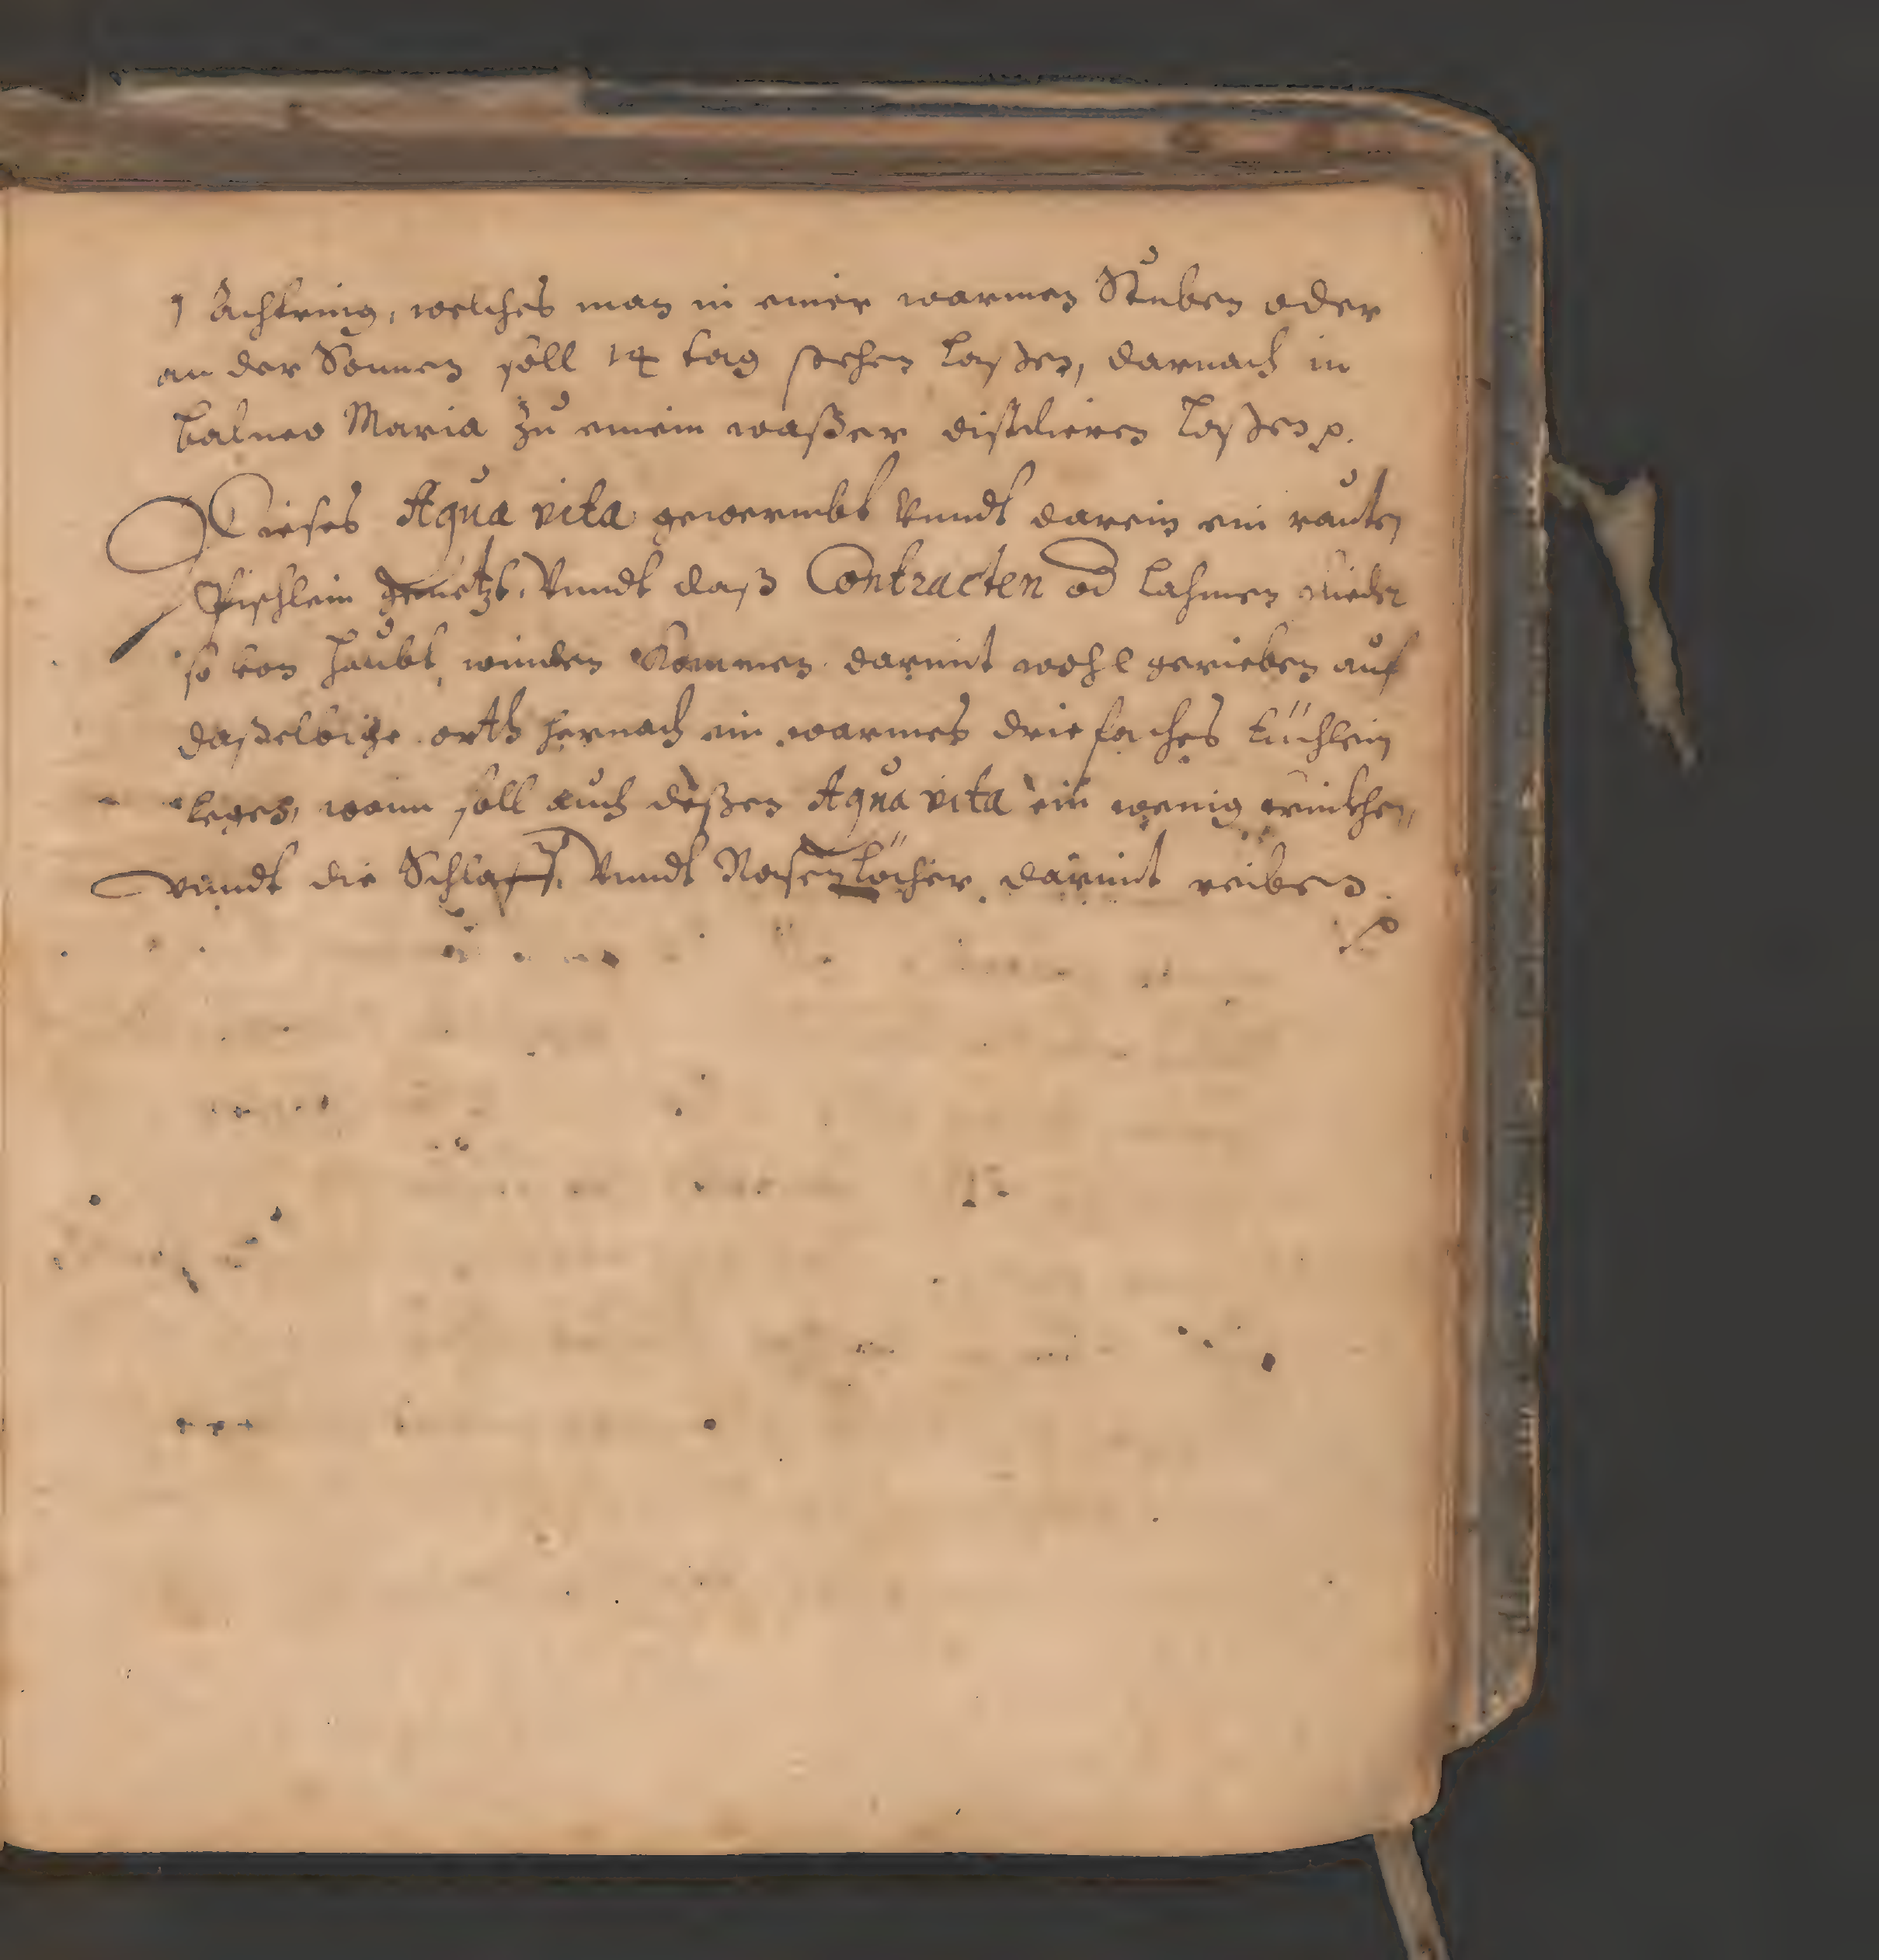 1 Achtring, welches man in einer warmen Stuben oder
an der Sonnen soll 14 tag stehen laßen, darnach in
balneo Maria zu einem waßer distilieren laßen ꝛc.
Dieses Aqua vita gewermbt vnndt darein ein rauten
genetzt, vnndt daß Contracten od lahmen glieder
so von haubt, winden kommen darmit wohl gerieben auf
daßelbige orth hernach ein warmes driefaches tüchlein
legen, mann soll auch deßen Aqua vita ein wenig trinkhen,
vnndt die Schlaff, vnndt Nasenlöcher darmit reiben
ꝛc